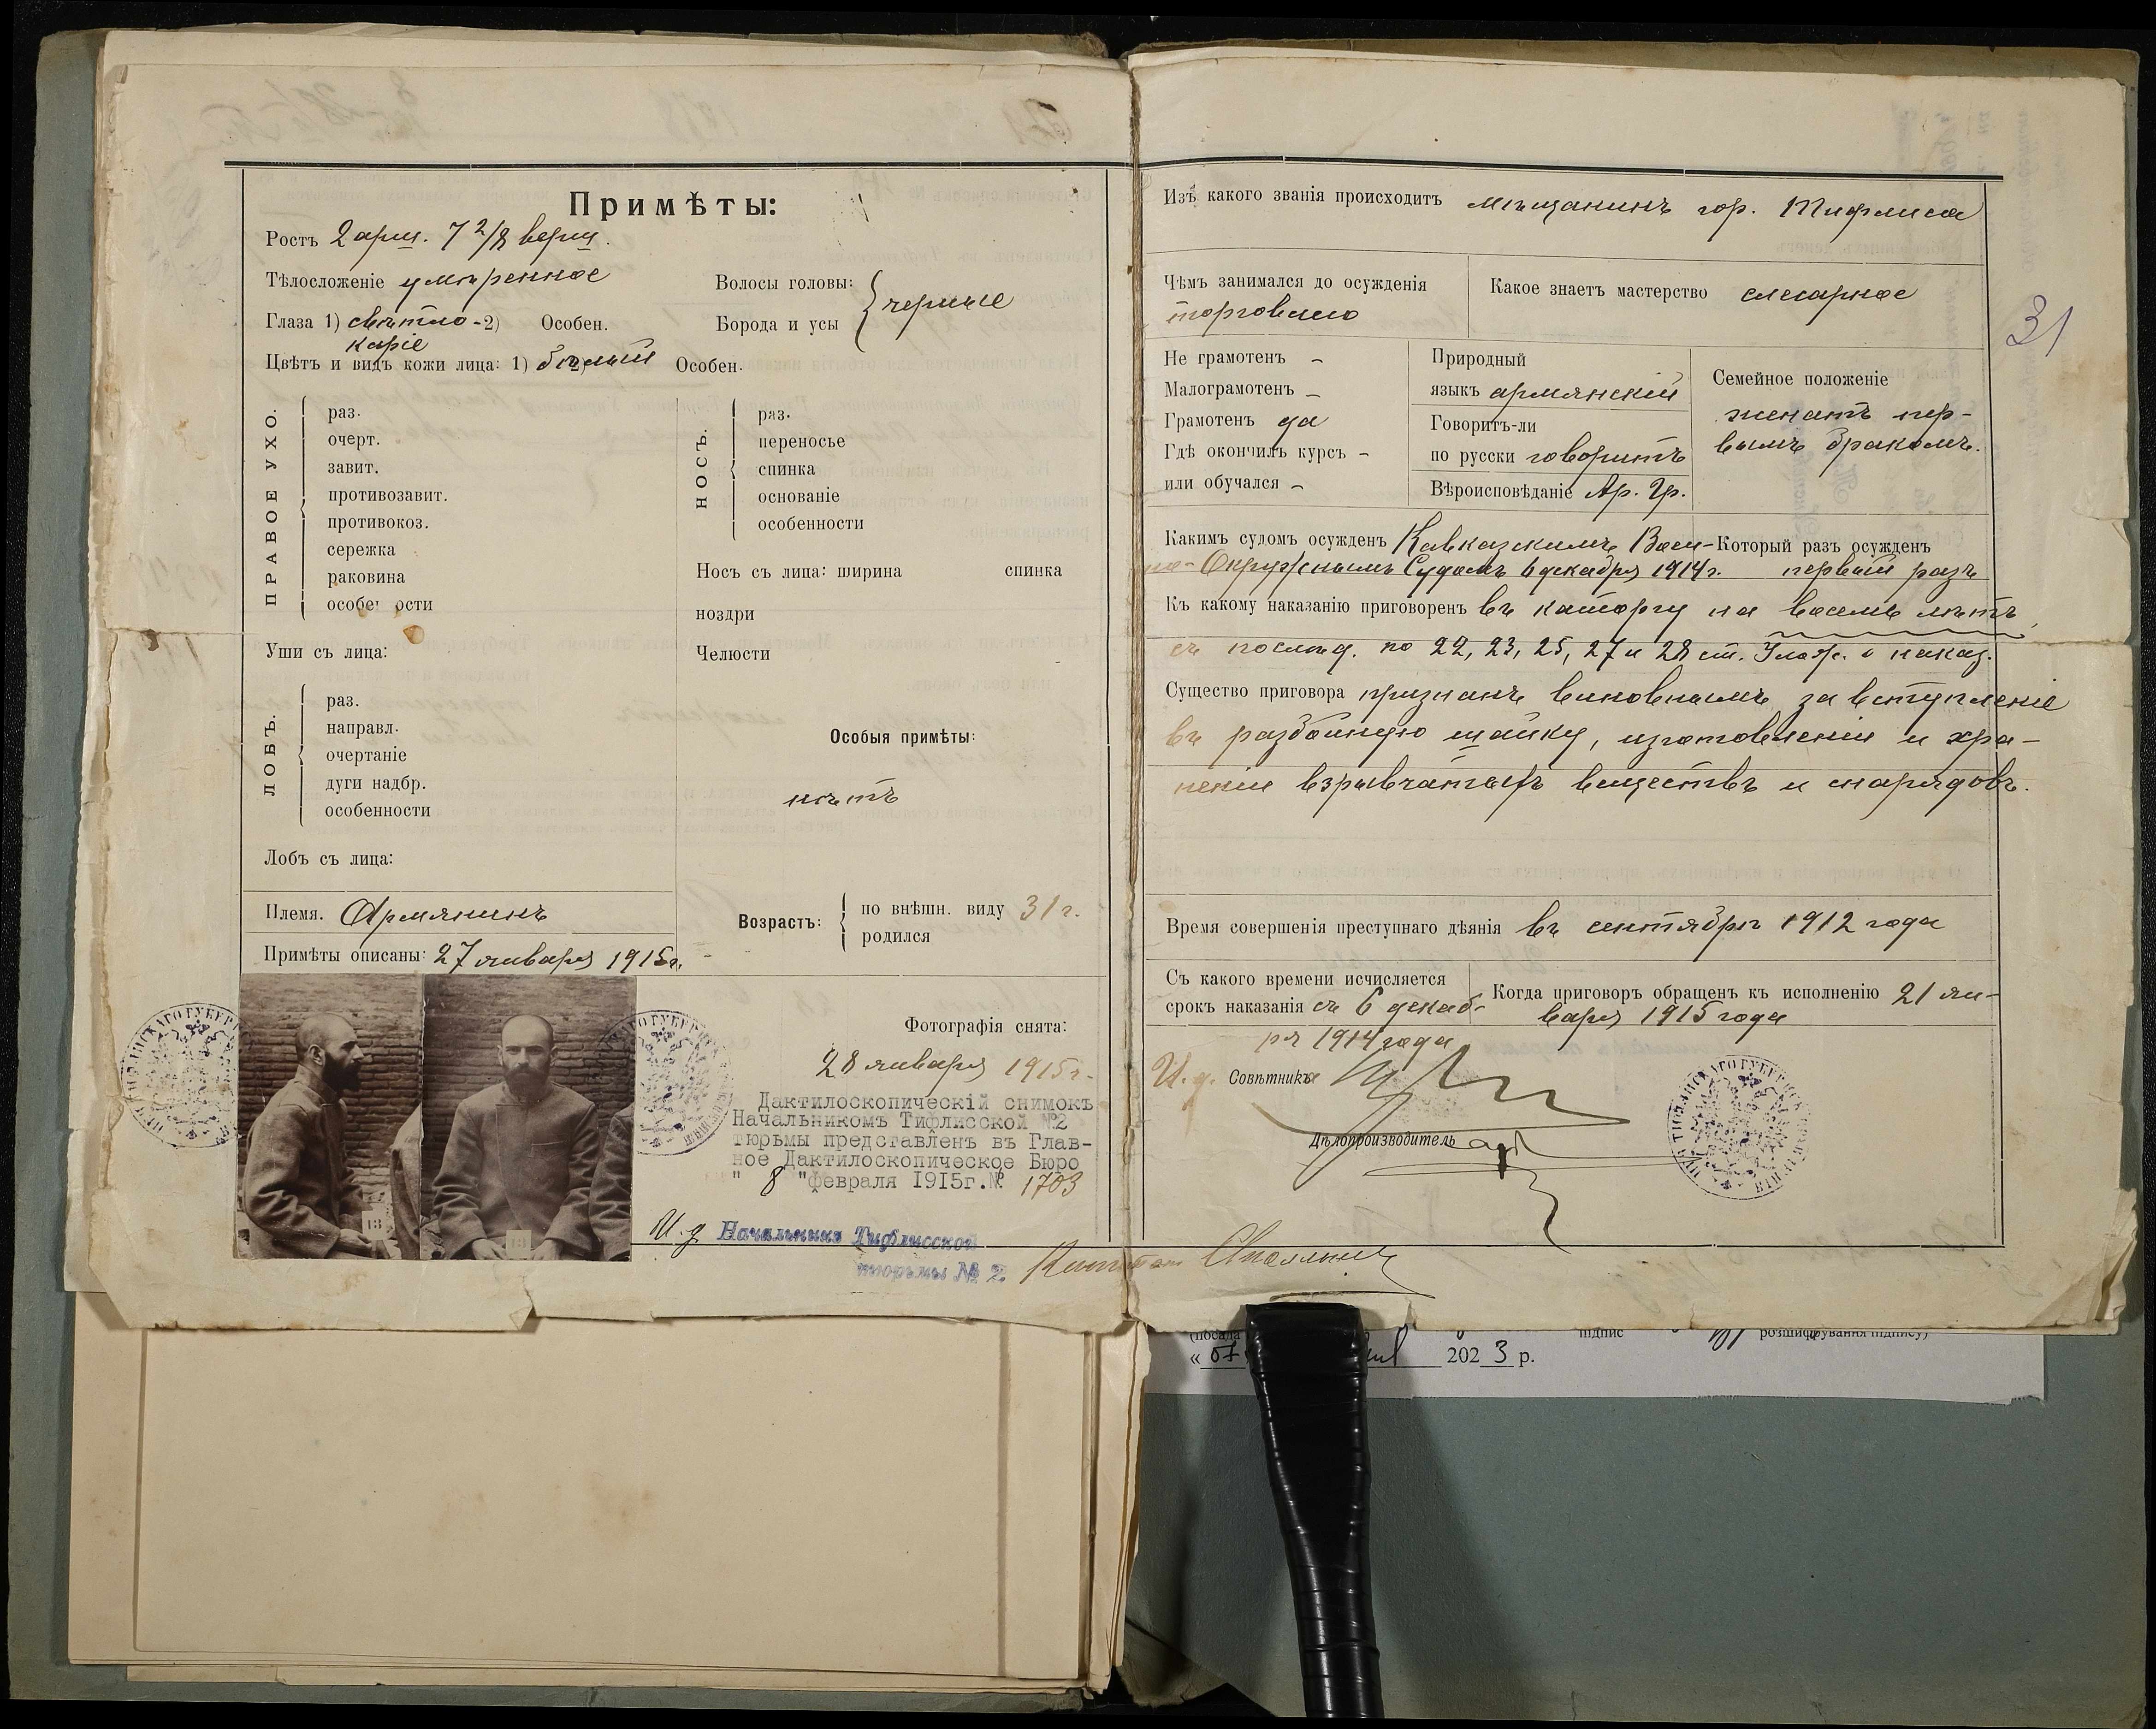 Примѣты:
Ростъ 2 арш. 7 2/8 верш.
Тѣлосложеніе умѣренное
Волосы головы:
Борода и усы
черные
Глаза 1) свѣтло - 2) Особен.
каріе
Цвѣтъ и видъ кожи лица: 1) бѣлый 2) Особен.
ПРАВОЕ УХО.
раз.
очерт.
завит.
противозавит.
противокоз.
сережка
раковина
особенности
НОСЪ.
раз.
переносье
спинка
основаніе
особенности
Носъ съ лица: ширина спинка
ноздри
Уши съ лица:
Челюсти
ЛОБЪ.
раз.
направл.
очертаніе
дуги надбр.
особенности
Особыя примѣты:
нѣтъ
Лобъ съ лица:
Племя. Армянинъ
Возрастъ:
по внѣшн. виду 31 г.
родился
Примѣты описаны: 27 января 1915 г.
13
13
Фотографія снята:
28 января 1915 г.
Дактилоскопическій снимокъ
Начальникомъ Тифлисской №2
тюрьмы представленъ въ Глав-
ное Дактилоскопическое Бюро
" 8 "февраля 1915г.№ 1703
И. д. Начальника Тифлисской
тюрьмы № 2.
Изъ какого званія происходитъ мѣщанинъ гор. Тифлиса
Чѣмъ занимался до осужденія
торговлею
Какое знаетъ мастерство слесарное
31
Не грамотенъ -
Малограмотенъ -
Грамотенъ да
Гдѣ окончилъ курсъ -
или обучался -
Природный
языкъ армянскій
Говоритъ-ли
по русски говоритъ
Вѣроисповѣданіе Ар. Гр.
Семейное положеніе
женатъ пер-
вымъ бракомъ.
Какимъ судомъ осужденъ Кавказскимъ Воен-
но-Окружнымъ Судомъ 6 декабря 1914 г.
Который разъ осужденъ
первый разъ
Къ какому наказанію приговоренъ въ каторгу на восемь лѣтъ,
съ послѣд. по 22, 23, 25, 27 и 28 ст. Улож. о наказ.
Существо приговора признанъ виновнымъ за вступленіе
въ разбойную шайку, изготовленіи и хра-
неніи взрывчатыхъ веществъ и снарядовъ.
Время совершенія преступнаго дѣянія въ сентябрѣ 1912 года
Съ какого времени исчисляется
срокъ наказанія съ 6 декаб-
ря 1914 года
Когда приговоръ обращенъ къ исполненію 21 ян-
варя 1915 года
И. д. Совѣтника
Дѣлопроизводитель
(посада
підпис
розшифрування підпису)
202 3 р.